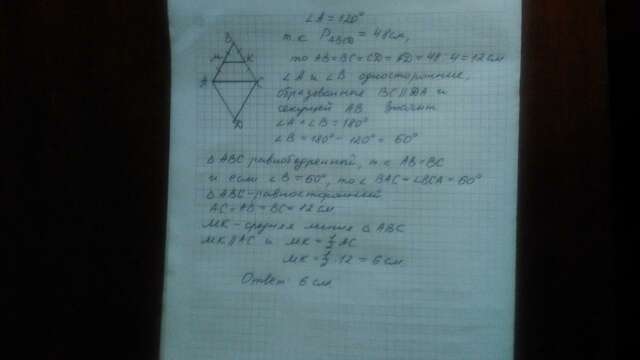 ∠A = 120°
т.к P ABCD = 48 см,
то AB = BC = CD = AD = 48 : 4 = 12 см
∠A и ∠B односторонние,
образованные BC || DA и
секущей AB значит
∠A + ∠B = 180°
∠B = 180° - 120° = 60°
B
M K
A C
D
△ABC-равнобедренный, т.к AB=BC
и если ∠B = 60°, то ∠BAC = ∠BCA = 60°
△ABC-равносторонний
AC = AB = BC = 12 см
MK - средняя линия △ABC
MK || AC и MK = 1/2 AC
MK = 1/2 · 12 = 6 см
Ответ: 6 см